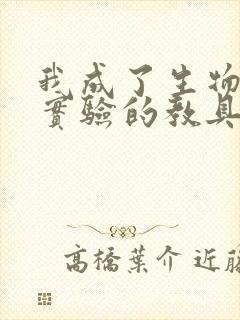 我成了生物
實驗的教具
高橋葉介 近藤